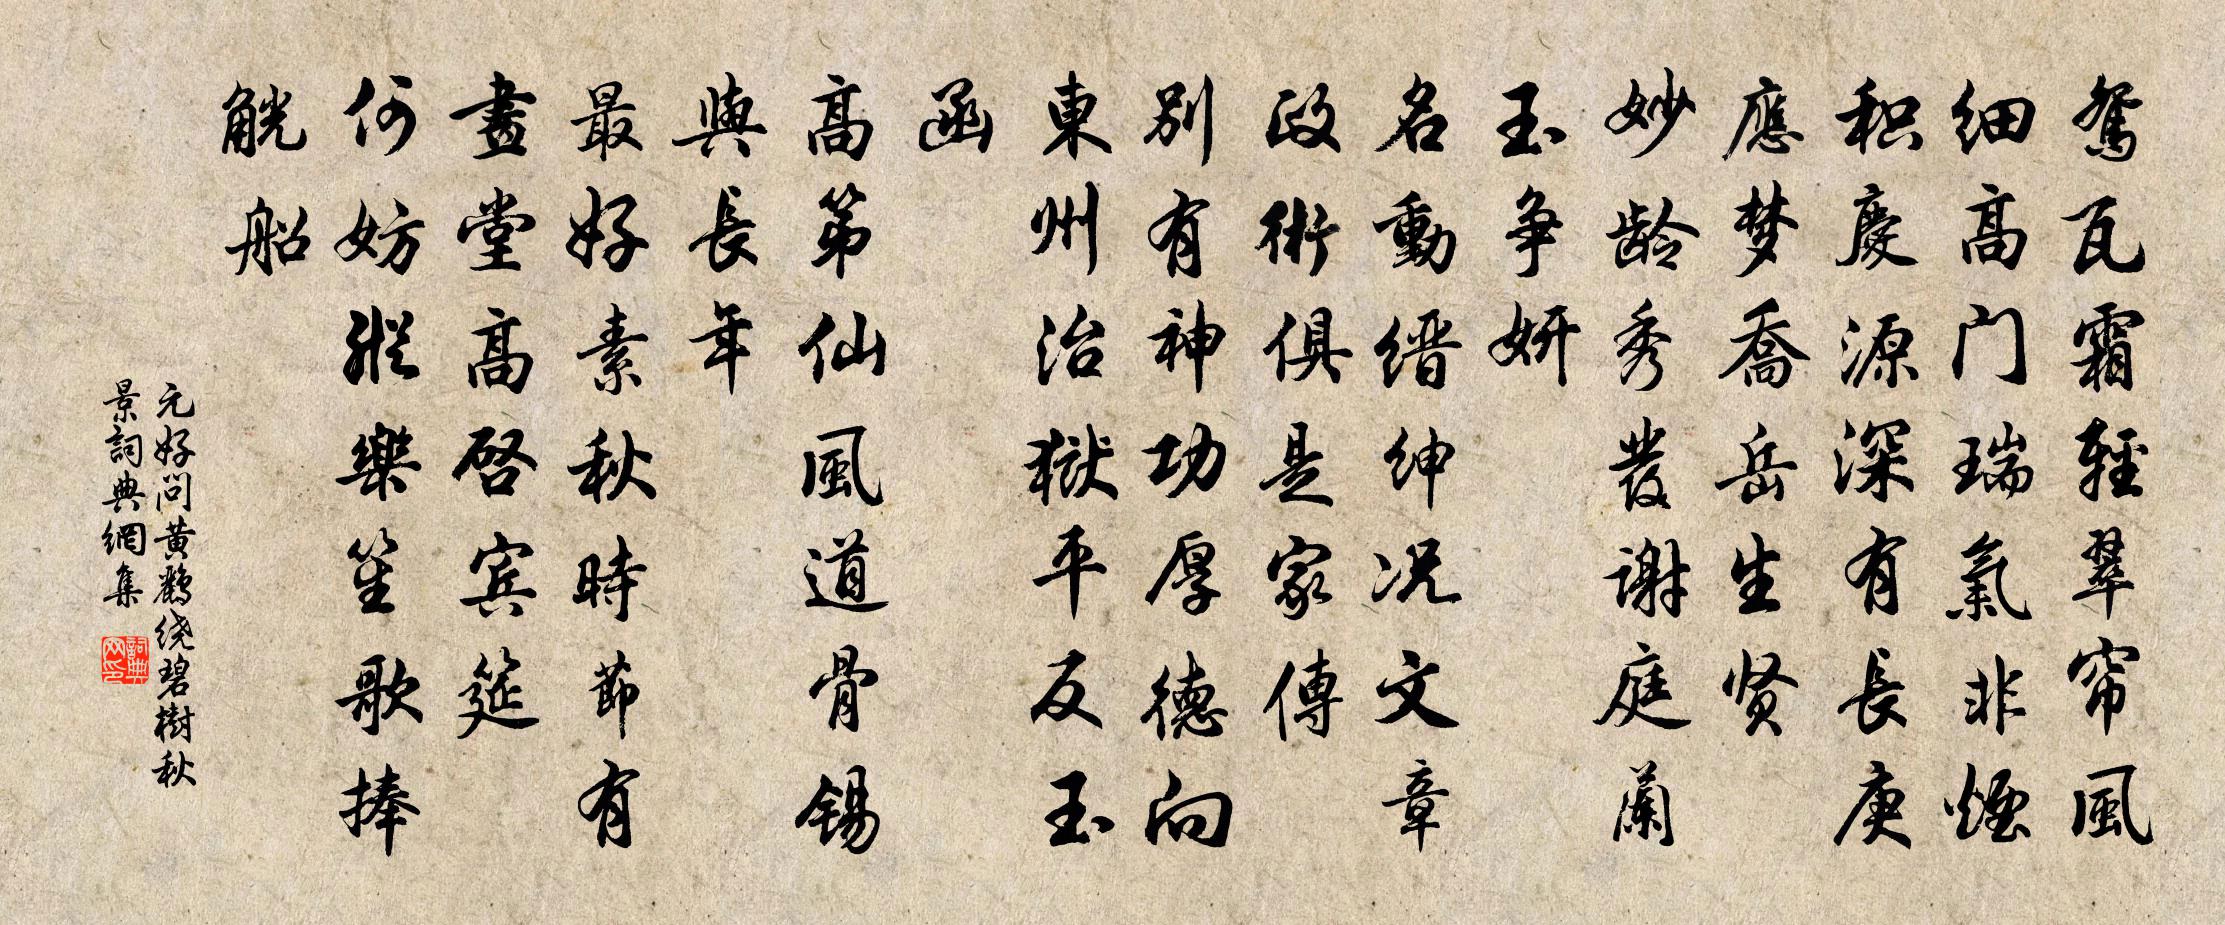 鸳瓦霜轻翠帘风
细高门瑞氣非烟
积慶源深有長庚
應梦喬岳生贤
妙龄秀發謝庭蘭
玉争妍
名動缙绅况文章
政術俱是家傳
别有神功厚德向
東州治獄平反玉
函
高第仙風道骨锡
與長年
最好素秋時節有
畫堂高啓宾筵
何妨纵樂笙歌捧
觥船
元好问黄鹤绕碧樹秋
景詞典網集
詞典网印